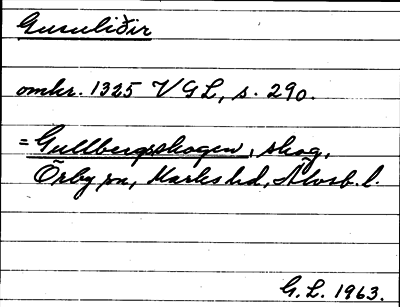 Gusuliðir
omkr. 1325 VGL, s. 290.
= Gullbergsskogen, skog,
Örby sn, Marks hd, Älvsb. l.
G. L. 1963.